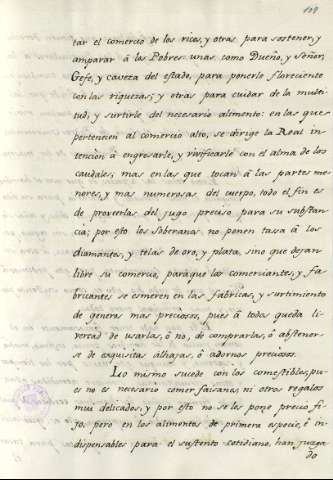 tar el comercio de los ricos, y otras para sostener, y
amparar â los Pobres: unas como Dueño, y Señor,
Gefe, y caveza del estado, para ponerle floreciente
con las riquezas; y otras para cuidar de la multi-
tud, y surtirle del necesario alimento: en las que
pertenecen al comercio alto, se dirige la Real in-
tencion â engresarle, y vivificarle con el alma de los
caudales, mas en las que tocan â las partes me-
nores, y mas numerosas del cuerpo, todo el fin es
de proverlas del jugo preciso para su substan-
cia; por esto los Soberanos no ponen tassa â los
diamantes, y telas de oro, y plata, sino que dejan
libre su comercio, paraque los comerciantes, y fa-
bricantes se esmeren en las fabricas, y surtimiento
de generos mas preciosos, pues â todos queda li-
vertad de usarlas, ô no, de comprarlas, ô abstener-
se de exquisitas alhajas, ô adornos preciosos.
Lo mismo sucede con los comestibles, pu-
es no es necesario comer faisanes, ni otros regalos
mui delicados, y por esto no se les pone precio fi-
jo; pero en los alimentos de primera especie, ê in-
dispensables para el sustento cotidiano, han juzga
do